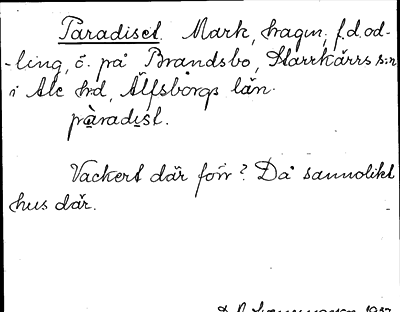 Paradiset. Mark, hagm, f.d. od-
-ling, ö. på Brandsbo, Starrkärrs s:n
i Ale hd, Älfsborgs län.
pàradist.
Vackert där förr? Då sannolikt
hus där.